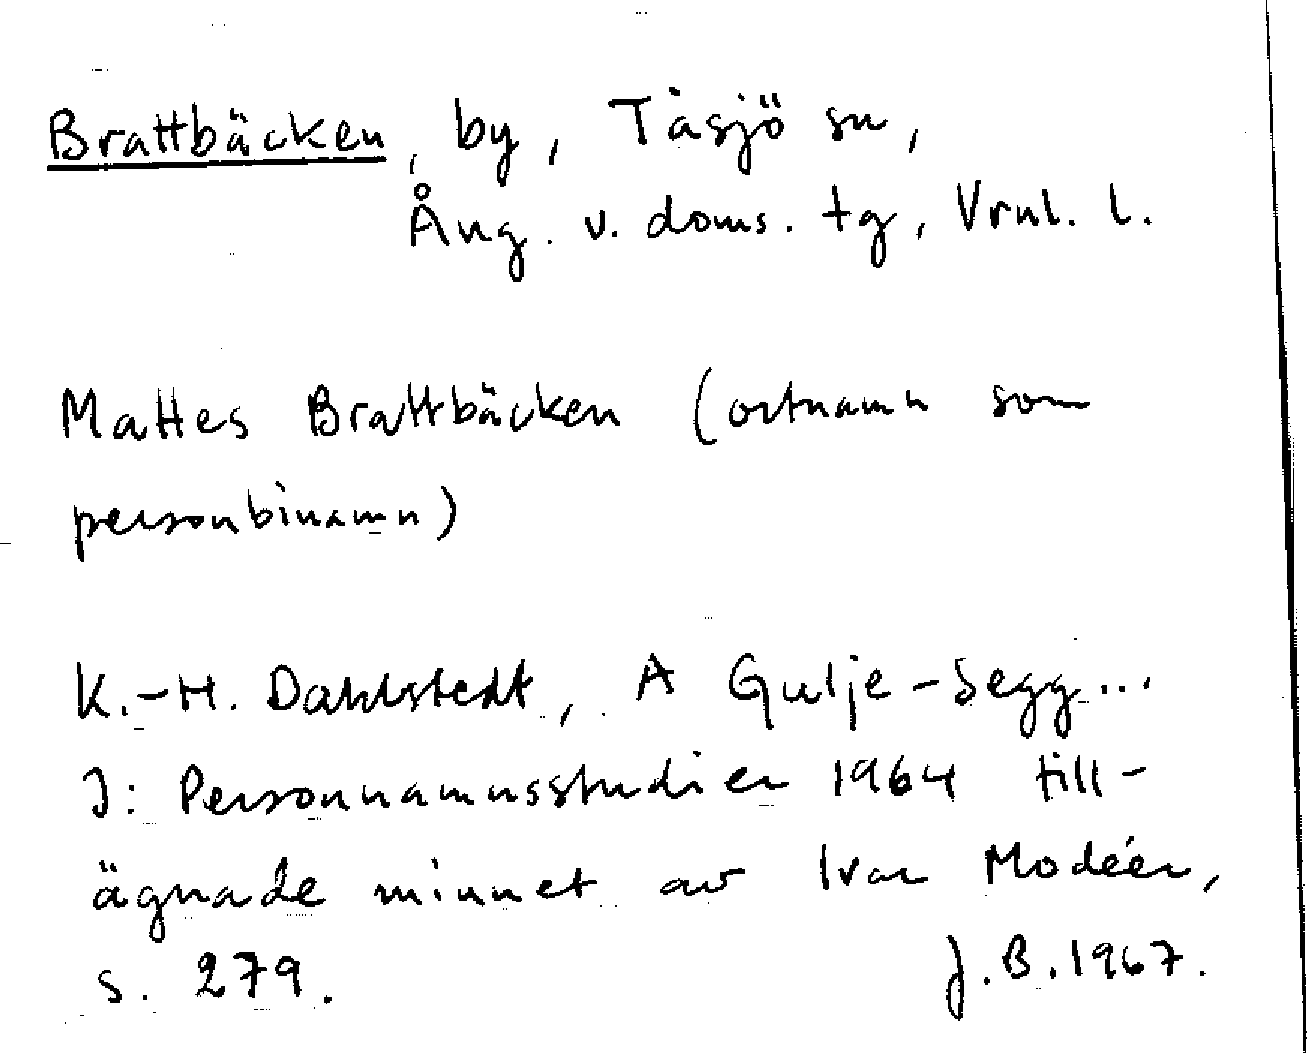 Brattbäcken, by, Tåsjö sn,
Ång. v. doms. tg, Vrnl. l.
Mattes Brattbäcken (ortnamn som
personbinamn)
K.-H. Dahlstedt, A Gulje-Segg...
I: Personnamnsstudier 1964 till-
ägnade minnet av Ivar Modéer,
s. 279. J.B.1967.